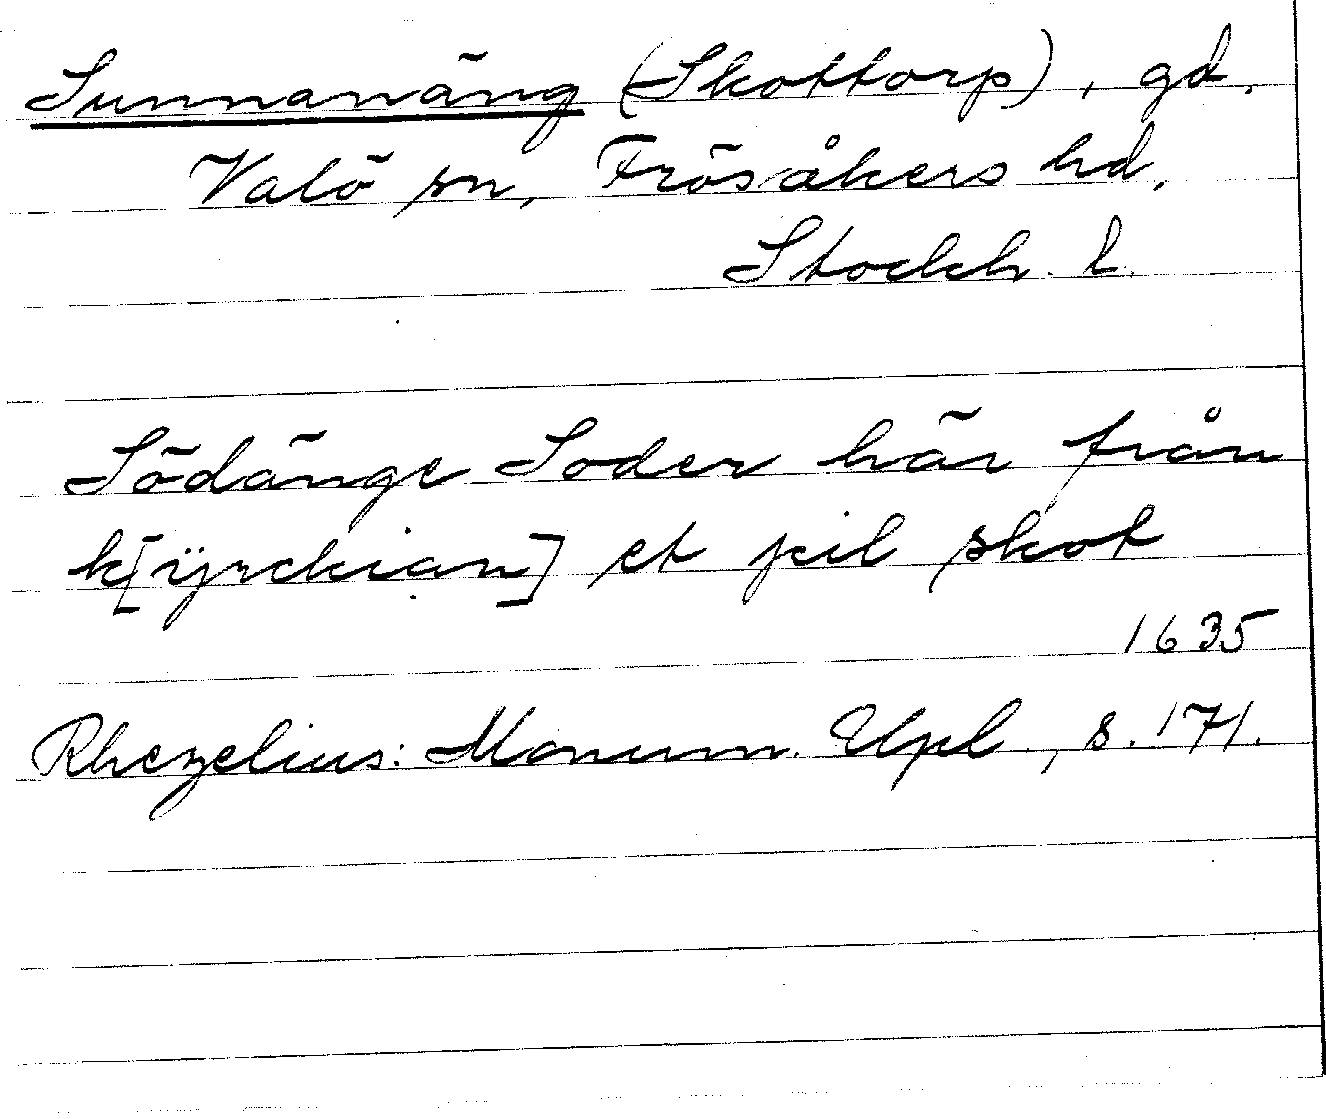 Sunnanäng (Skottorp), gd.
Valö sn, Frösåkers hd,
Stockh. l.
Södänge Soder här från
k[ÿrckian] et pil skot
1635
Rhezelius: Monum. Upl., s. 171.